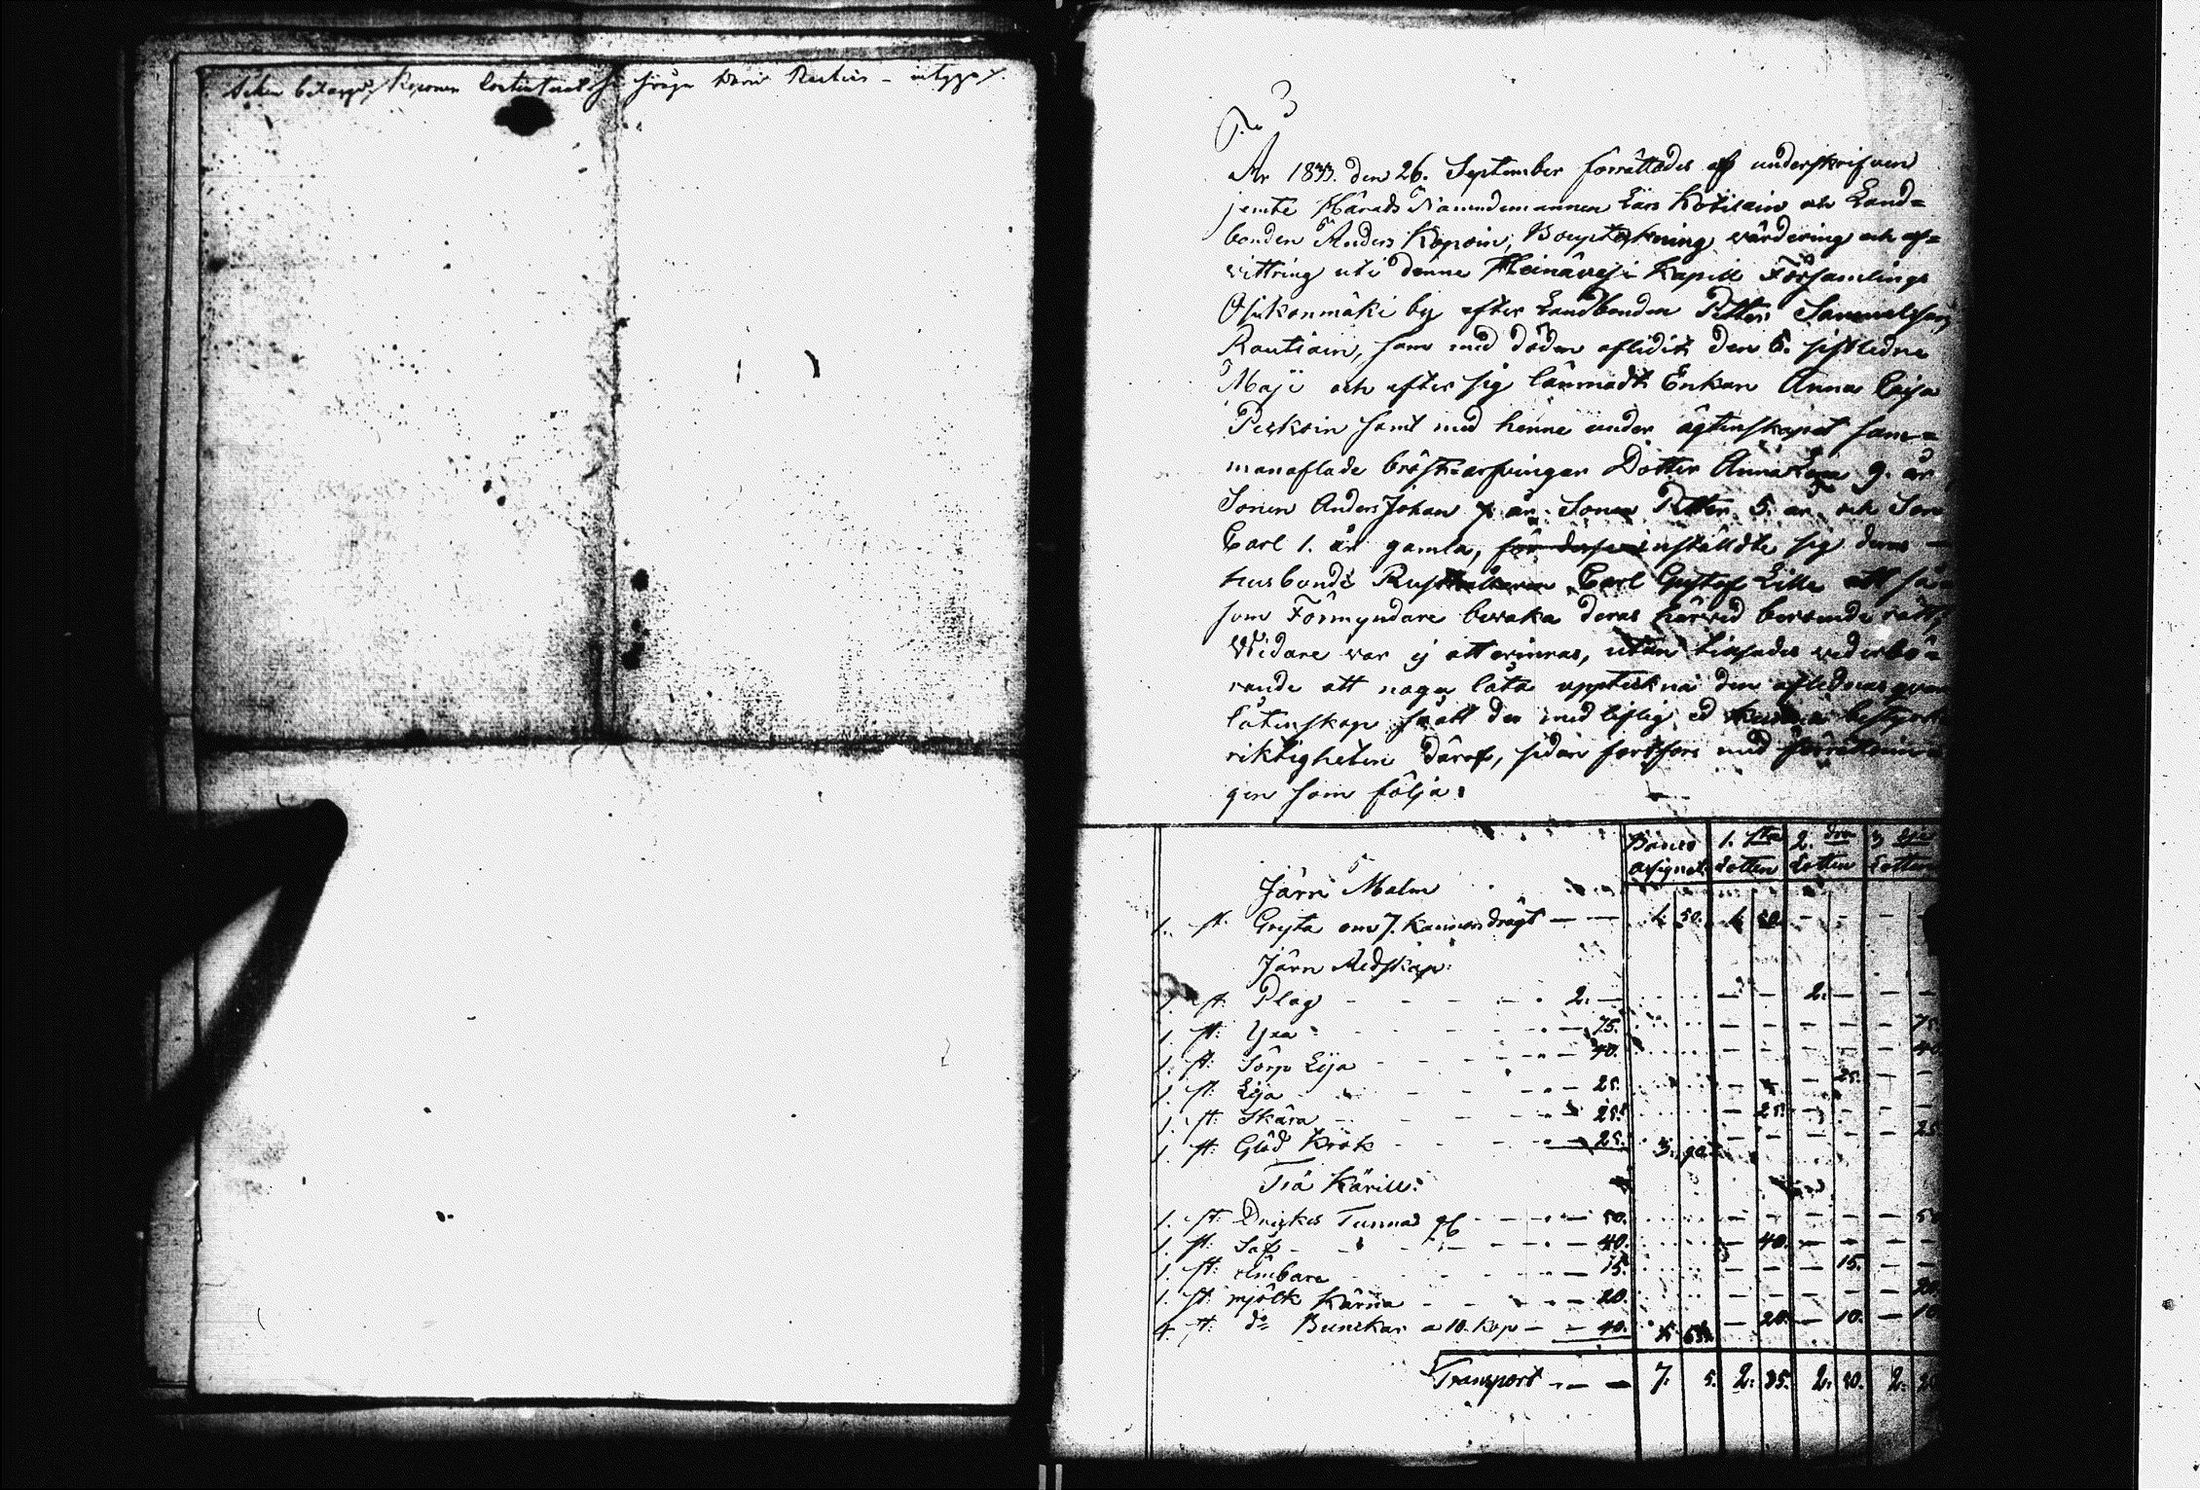 No 3
År 1833. den 26. September förrättades af underskrifven
jemte Härads Nämndemannen Lars Kotilain och Land=
bonden Anders Kopoin, Bouptekning värdering och af=
vittring uti denne Heinävesi Kapell Församlings
by efter Landbonden Petter Samuelsson
Rautiain, som med döden aflidit den 6. sistledne
Maji och efter sig lämnadt Enkan Anna Caisa
samt med henne under ägtenskapet sam=
manaflade bröst=arfvingar Dotter Anna 9. år
Sonen Anders Johan 7. år. Sonen Petter 5. år och Son
Carl 1. år gamla, inställdte sig deras
husbonde Rusthållaren Carl Gustaf Lille att så
som Förmyndare bevaka deras härvid beroende rätt,
Widare var ej att erinras, utan vederbö=
rande att noga låta uppteckna den aflidnes qvar
låtenskap så att de med liflig ed kunna bestyrka
riktigheten däraf, sedan fortfors med förrättnin
gen som följa:
Banco 1. sta 2. dra 3. dje
Assignat Lotten Lotten Lotten
Järn Malm
1. st. Gryta om 7. kannors drägt — — 1. 50. 1. 50. — — —
Järn Redskap:
1. st. Plog 2. — — — 2. — — —
1. st: Yxa — 75. — — — — — 75
1. st: Sörp Lija — 40. — — — — — 40
1. st: Lija — 25. — — — 25. — —
1. st: Skära — 25. — 25. — — — —
1. st. Glöd Krok — 25. 3. 90. — — — — 25
Trä Kärill:
1. st: Drickes Tunna — 50. — — — — — 50
1. st: Såf — 40. — 40. — — — —
1. st: Ämbare — 15. — — — 15. — —
1. st. mjölk Kärna — 20. — — — — — 20
4. st. do Bunckar a 10. Kop — 40. 1. 65. — 20. — 10. — 10
Transport — — 7. 5. 2. 35. 2. 50. 2. 20